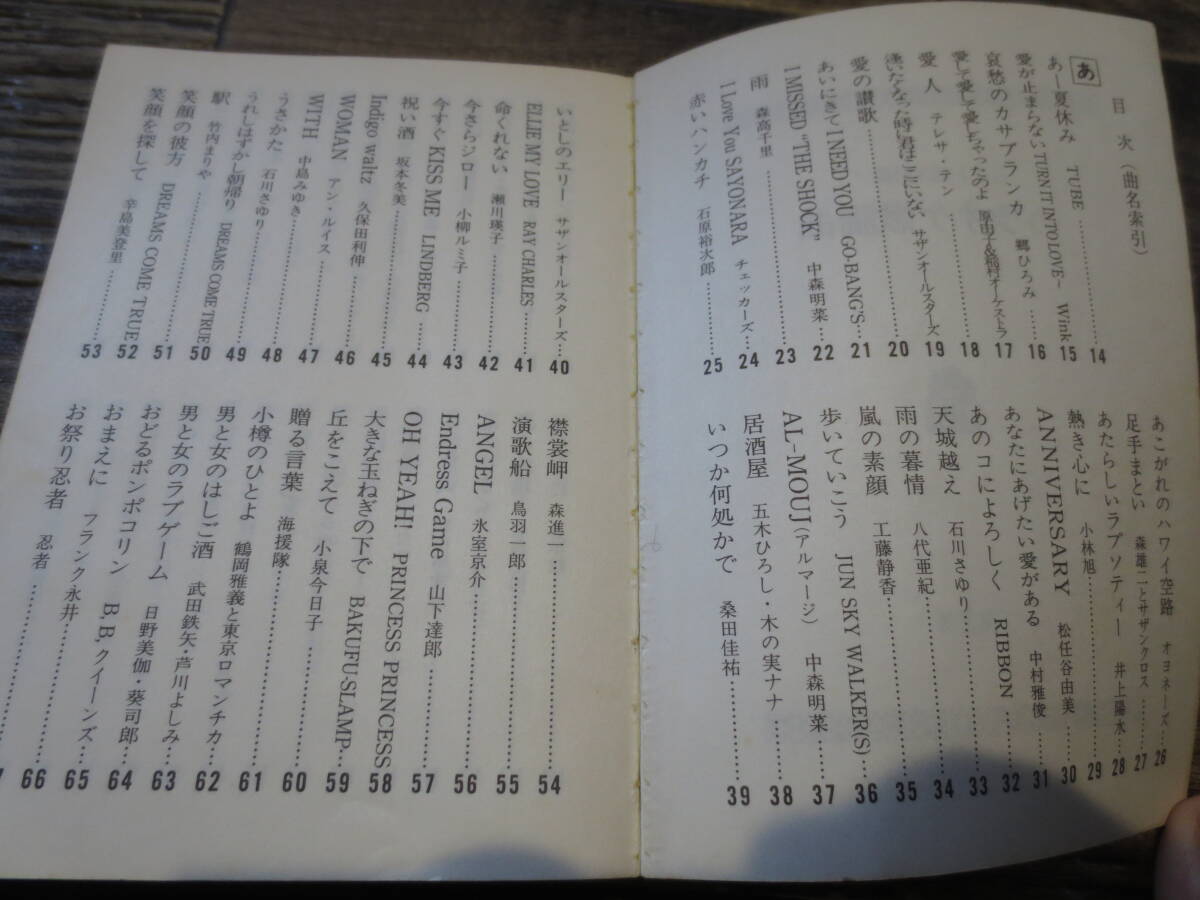 目次（曲名索引）
あ
あー夏休み　TUBE……14
愛が止まらない TURN IT INTO LOVE～　Wink……15
哀愁のカサブランカ　郷ひろみ……16
愛して愛して愛しちゃったのよ　原由子&稲村オーケストラ……17
愛人　テレサ・テン……18
逢いたくなった時に君はここにいない　サザンオールスターズ……19
愛の讃歌……20
あいにきて I NEED YOU　GO-BANG'S……21
I MISSED "THE SHOCK"　中森明菜……22
雨　森高千里……23
I Love You SAYONARA　チェッカーズ……24
赤いハンカチ　石原裕次郎……25
あこがれのハワイ空路　オヨネーズ……26
足手まとい　森雄二とサザンクロス……27
あたらしいラプソディー　井上陽水……28
熱き心に　小林旭……29
ANNIVERSARY　松任谷由美……30
あなたにあげたい愛がある　中村雅俊……31
あのコによろしく　RIBBON……32
天城越え　石川さゆり……33
雨の暮情　八代亜紀……34
嵐の素顔　工藤静香……35
歩いていこう　JUN SKY WALKER(S)……36
AL-MOUJ（アルマージ）　中森明菜……37
居酒屋　五木ひろし・木の実ナナ……38
いつか何処かで　桑田佳祐……39
いとしのエリー　サザンオールスターズ……40
ELLIE MY LOVE　RAY CHARLES……41
命くれない　瀬川瑛子……42
今さらジロー　小柳ルミ子……43
今すぐKISS ME　LINDBERG……44
祝い酒　坂本冬美……45
Indigo waltz　久保田利伸……46
WOMAN　アン・ルイス……47
WITH　中島みゆき……48
うたかた　石川さゆり……49
うれしはずかし朝帰り　DREAMS COME TRUE……50
駅　竹内まりや……51
笑顔の彼方　DREAMS COME TRUE……52
笑顔を探して　辛島美登里……53
襟裳岬　森進一……54
演歌船　鳥羽一郎……55
ANGEL　氷室京介……56
Endress Game　山下達郎……57
OH YEAH!　PRINCESS PRINCESS……58
大きな玉ねぎの下で　BAKUFU-SLAMP……59
丘をこえて　小泉今日子……60
贈る言葉　海援隊……61
小樽のひとよ　鶴岡雅義と東京ロマンチカ……62
男と女のはしご酒　武田鉄矢・芦川よしみ……63
男と女のラブゲーム　日野美伽・葵司郎……64
おどるポンポコリン　B,B,クイーンズ……65
おまえに　フランク永井……66
お祭り忍者　忍者……